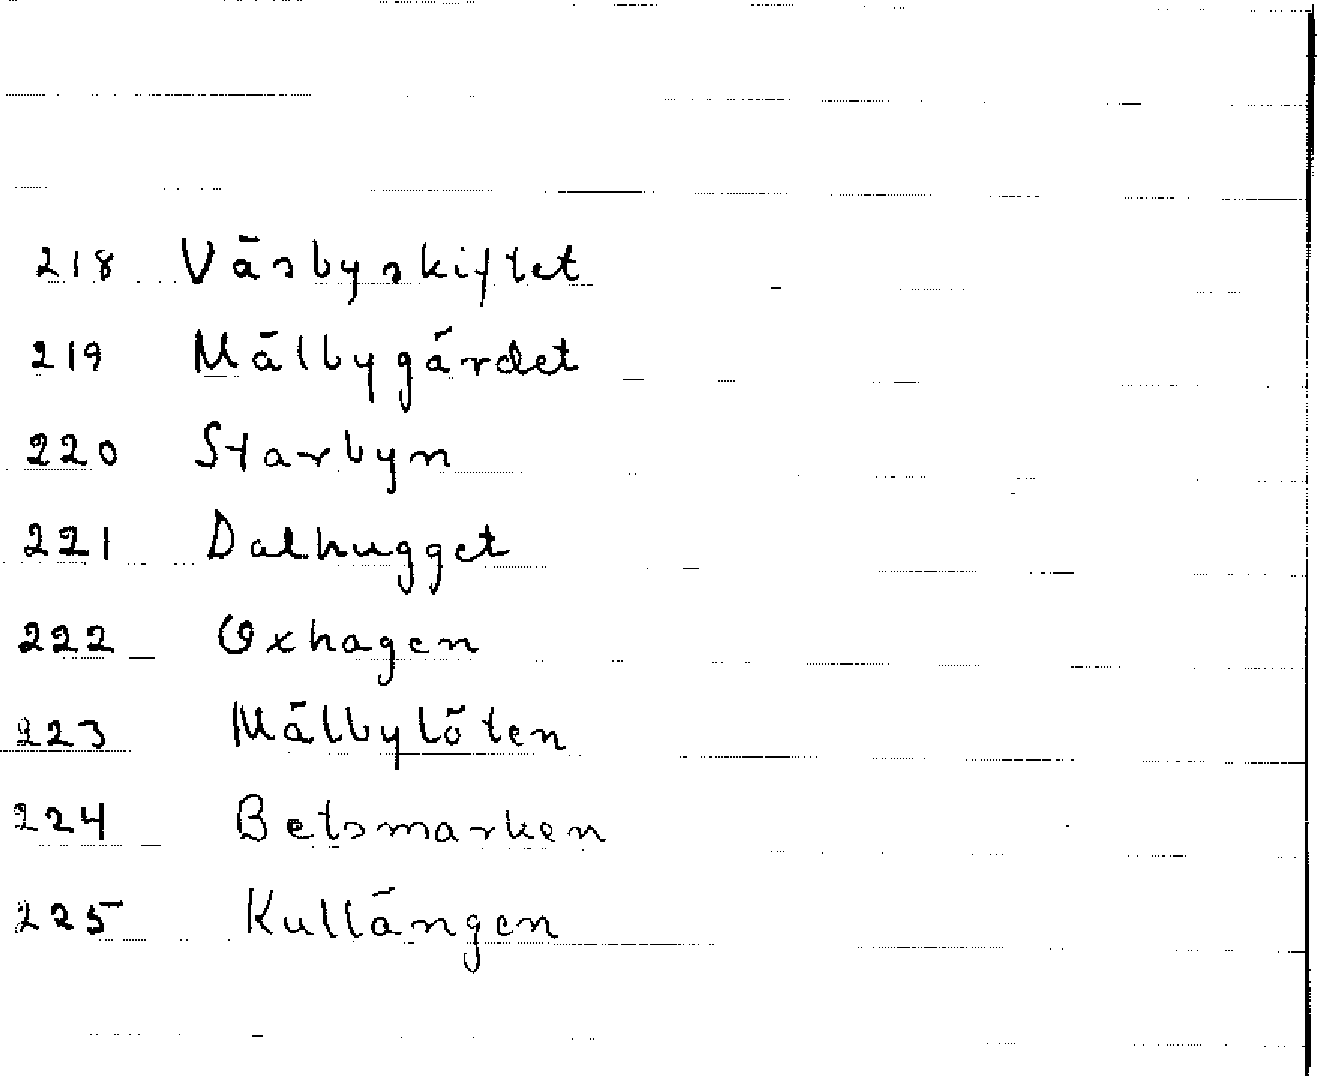 218 Väsbyskiftet
219 Mälbygärdet
220 Starbyn
221 Dalhugget
222 Oxhagen
223 Mälbylöten
224 Betsmarken
225 Kullängen